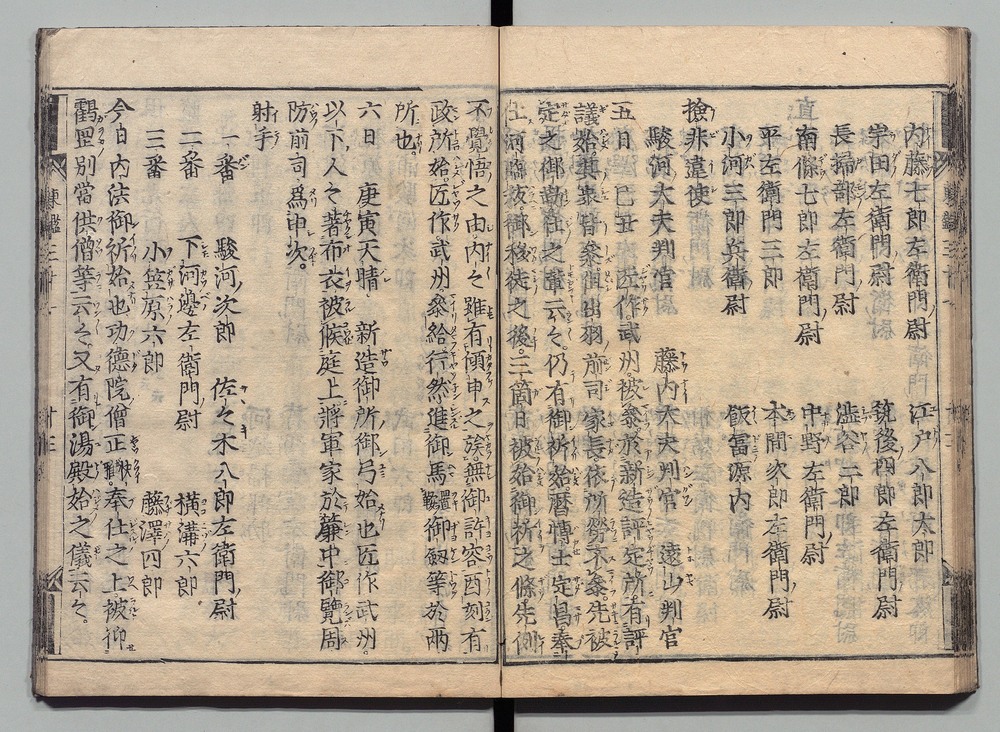 内藤七郎左衛門尉　江戸八郎太郎
宇田左衛門尉　筑後四郎左衛門尉
長掃部左衛門尉　澁谷三郎
南條七郎左衛門尉　中野左衛門尉
平左衛門三郎　本間次郎左衛門尉
小河三郎兵衛尉　飯冨源内
撿非違使
駿河大夫判官　藤内大夫判官　遠山判官
五日　己丑　匠作武州被參於新造評定所有評
議始其衆皆參但出羽前司家長依所勞不參先被
定之御勤仕之輩云々仍有御祈始暦博士定昌奉
仕河臨祓御移徙之後三箇日被始御祈之條先例
不覺悟之由内々雖有傾申之族無御許容酉刻有
政所始匠作武州參給行然進御馬置鞍御劔等於兩
所也。
六日　庚寅天晴　新造御所御弓始也匠作武州。
以下人々著布衣被候庭上將軍家於簾中御覽周
防前司爲申次。
射手
一番　駿河次郎　佐々木八郎左衛門尉
二番　下河邊左衛門尉　横溝六郎
三番　小笠原六郎　藤澤四郎
今日内法御祈始也功德院僧正快雅奉仕之上被仰
鶴罡別當供僧等云々又有御湯殿始之儀云々。
東鑑三十一
十三